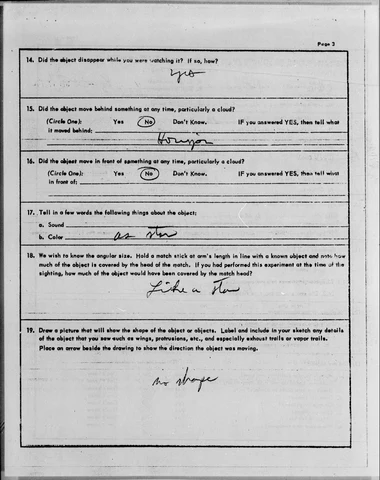 Page 3
14. Did the object disappear while you were watching it? If so, how?
yes
15. Did the object move behind something at any time, particularly a cloud?
(Circle One): Yes No Don't Know. IF you answered YES, then tell what
it moved behind:
Horizon
16. Did the object move in front of something at any time, particularly a cloud?
(Circle One): Yes No Don't Know. IF you answered YES, then tell what
in front of:
17. Tell in a few words the following things about the object:
a. Sound
b. Color as star
18. We wish to know the angular size. Hold a match stick at arm's length in line with a known object and note how
much of the object is covered by the head of the match. If you had performed this experiment at the time of the
sighting, how much of the object would have been covered by the match head?
Like a star
19. Draw a picture that will show the shape of the object or objects. Label and include in your sketch any details
of the object that you saw such as wings, protrusions, etc., and especially exhaust trails or vapor trails.
Place an arrow beside the drawing to show the direction the object was moving.
no shape